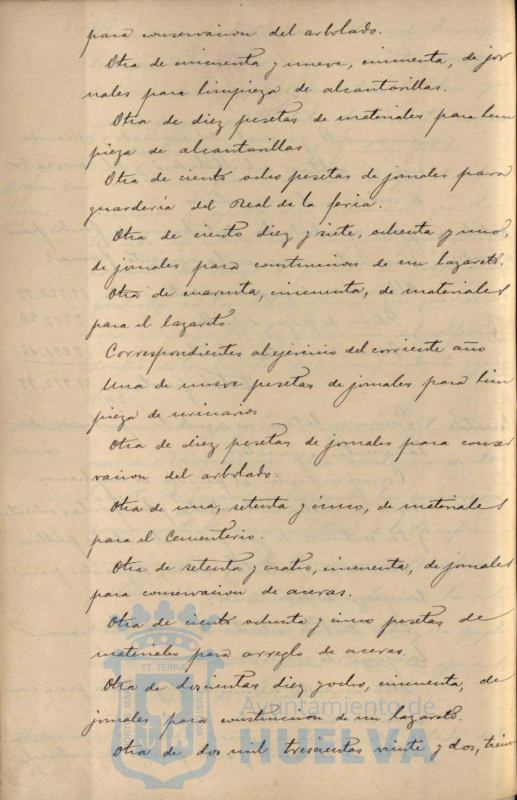 para conservacion del arbolado.
Otra de cincuenta y nueve, cincuenta, de jor
nales para limpieza de alcantarillas.
Otra de diez pesetas de materiales para lim
pieza de alcantarillas
Otra de ciento ocho pesetas de jornales para
guardería del Real de la feria.
Otra de ciento diez y siete, ochenta y uno,
de jornales para construccion de un lazareto.
Otra de cuarenta, cincuenta, de materiales
para el lazareto.
Correspondientes al ejercicio del corriente año
Una de nueve pesetas de jornales para lim
pieza de urinarios
Otra de diez pesetas de jornales para conser
vacion del arbolado.
Otra de una, setenta y cinco, de materiales
para el Cementerio.
Otra de setenta y cuatro, cincuenta, de jornales
para conservacion de aceras.
Otra de ciento ochenta y cinco pesetas de
materiales para arreglo de aceras.
Otra de doscientas diez y ocho, cincuenta, de
jornales para construccion de un lazareto.
Otra de dos mil trescientas veinte y dos, trein
ET TERRA
Ayuntamiento de
HUELVA